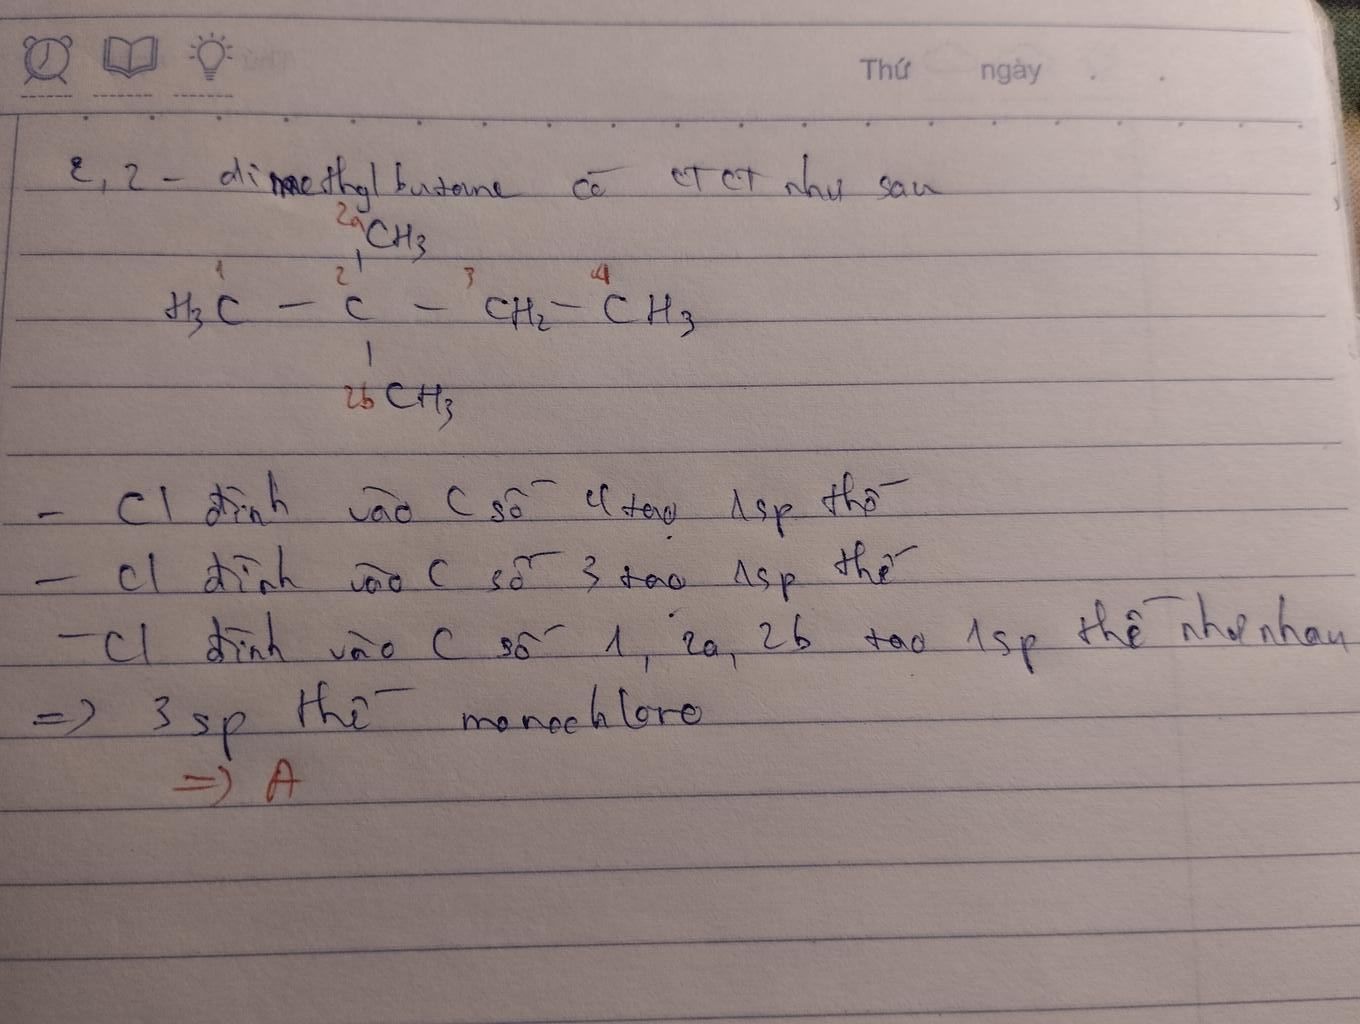 Thứ ngày
2, 2 - dimethylbutane có CTCT như sau
2a CH3
1 2 3 4
H3C - C - CH2 - CH3
2b CH3
- Cl đính vào C số 4 tạo 1sp thế
- Cl đính vào C số 3 tạo 1sp thế
- Cl đính vào C số 1, 2a, 2b tạo 1sp thế như nhau
=> 3 sp thế monochloro
=> A